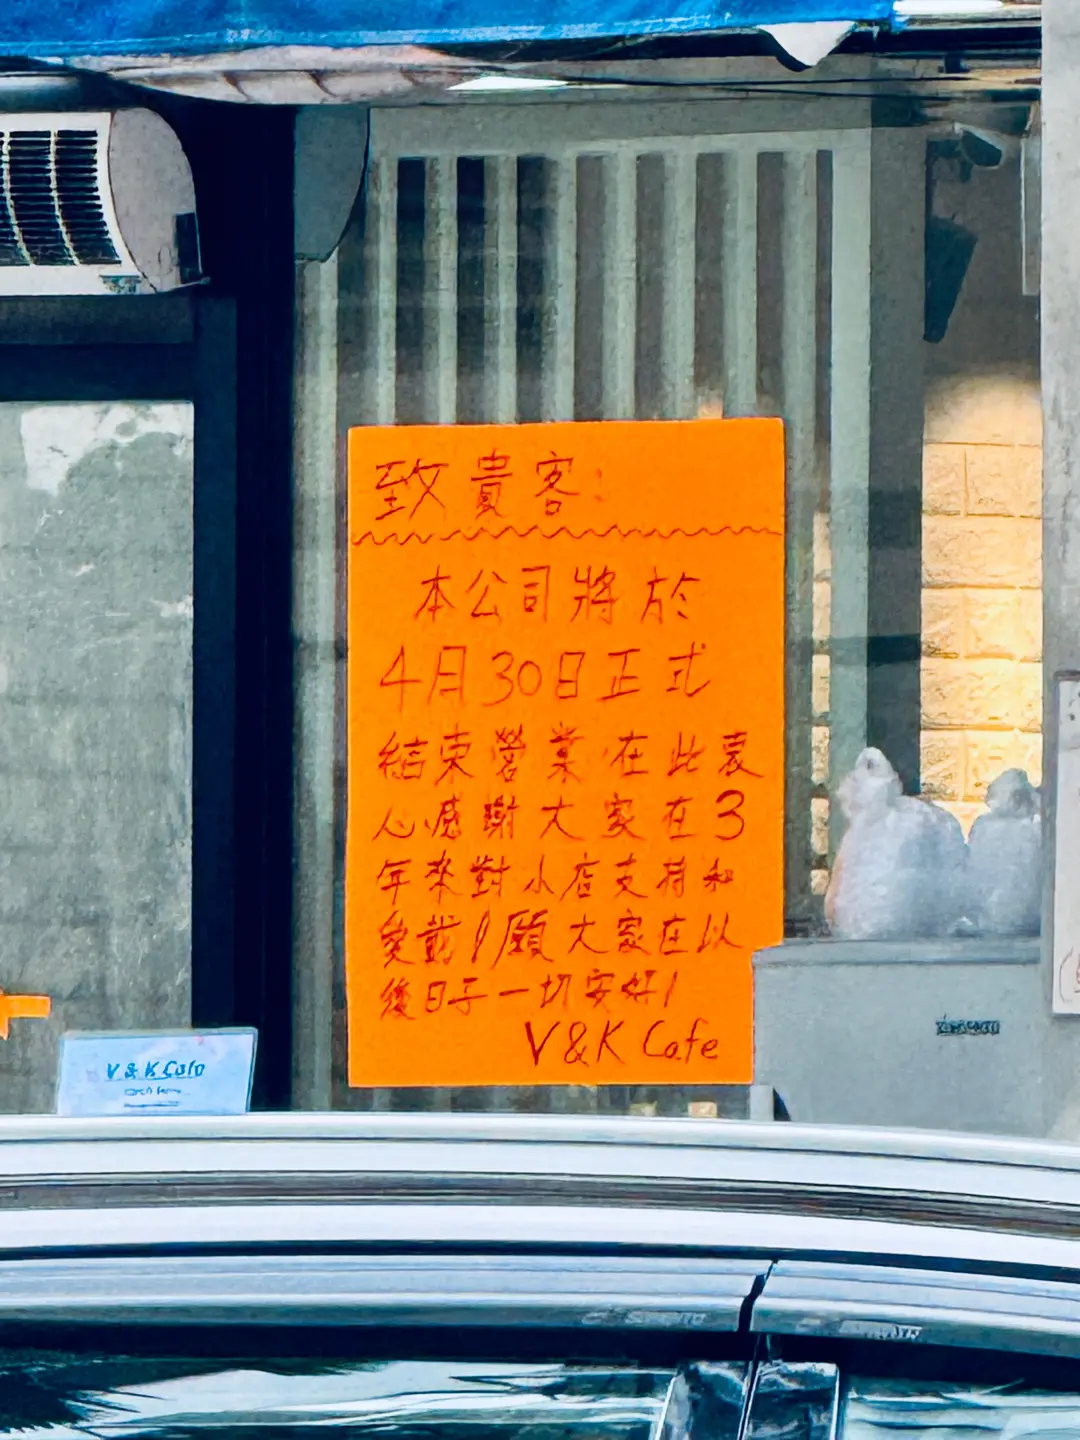 致貴客:
本公司將於
4月30日正式
結束營業在此衷
心感謝大家在3
年來對小店支持和
愛戴!願大家在以
後日子一切安好!
V&K Cafe
V & K Cafe